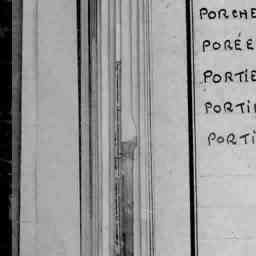 PORCHE
PORÉE
PORTIE
PORTI
PORTI